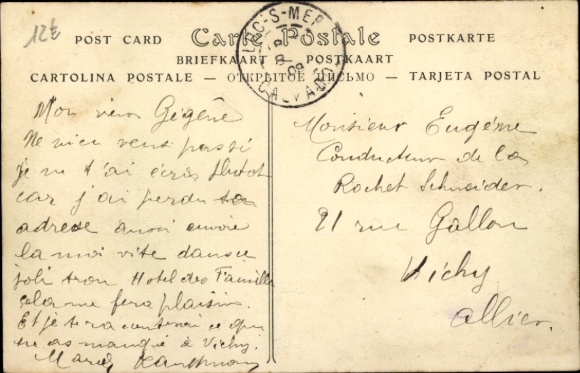 12€
POST CARD Carte Postale POSTKARTE
BRIEFKAART — POSTKAART
CARTOLINA POSTALE — ОТКРЫТОЕ ПИСЬМО — TARJETA POSTAL
LUC-S-MER
CALVADOS
Mon vieux Gégêne
Ne
je ne t'ai écris plutot
car j'ai perdu ta
adresse aussi envoie
la moi vite dans ce
joli trou Hotel des Famille
cela me fera plaisir.
Et je te ra conterai ce que
tu as manqué à Vichy.
Marcel
Monsieur Eugéne
Conducteur de la
Rochet Schneider.
21 rue Gallon
Vichy
Allier.